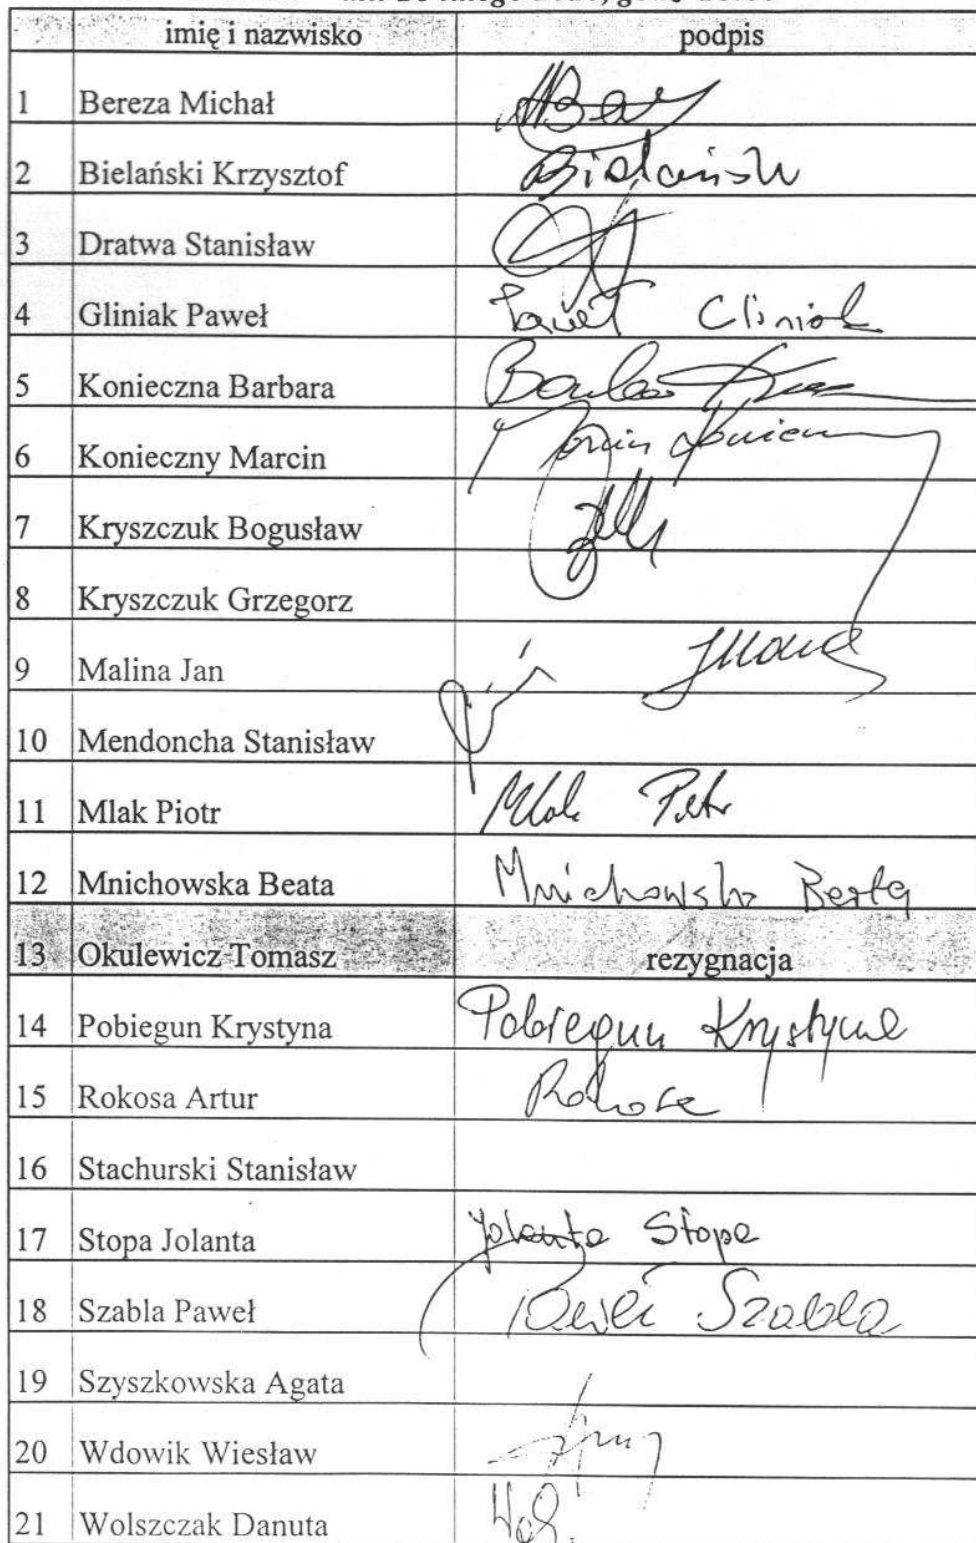 imię i nazwisko podpis
1 Bereza Michał
2 Bielański Krzysztof Bielański
3 Dratwa Stanisław
4 Gliniak Paweł Paweł Gliniak
5 Konieczna Barbara Barbara
6 Konieczny Marcin Marcin
7 Kryszczuk Bogusław
8 Kryszczuk Grzegorz
9 Malina Jan
10 Mendoncha Stanisław
11 Mlak Piotr Mlak Piotr
12 Mnichowska Beata Mnichowska Beata
13 Okulewicz Tomasz rezygnacja
14 Pobiegun Krystyna Pobiegun Krystyna
15 Rokosa Artur Rokosa
16 Stachurski Stanisław
17 Stopa Jolanta Jolanta Stopa
18 Szabla Paweł Paweł Szabla
19 Szyszkowska Agata
20 Wdowik Wiesław
21 Wolszczak Danuta